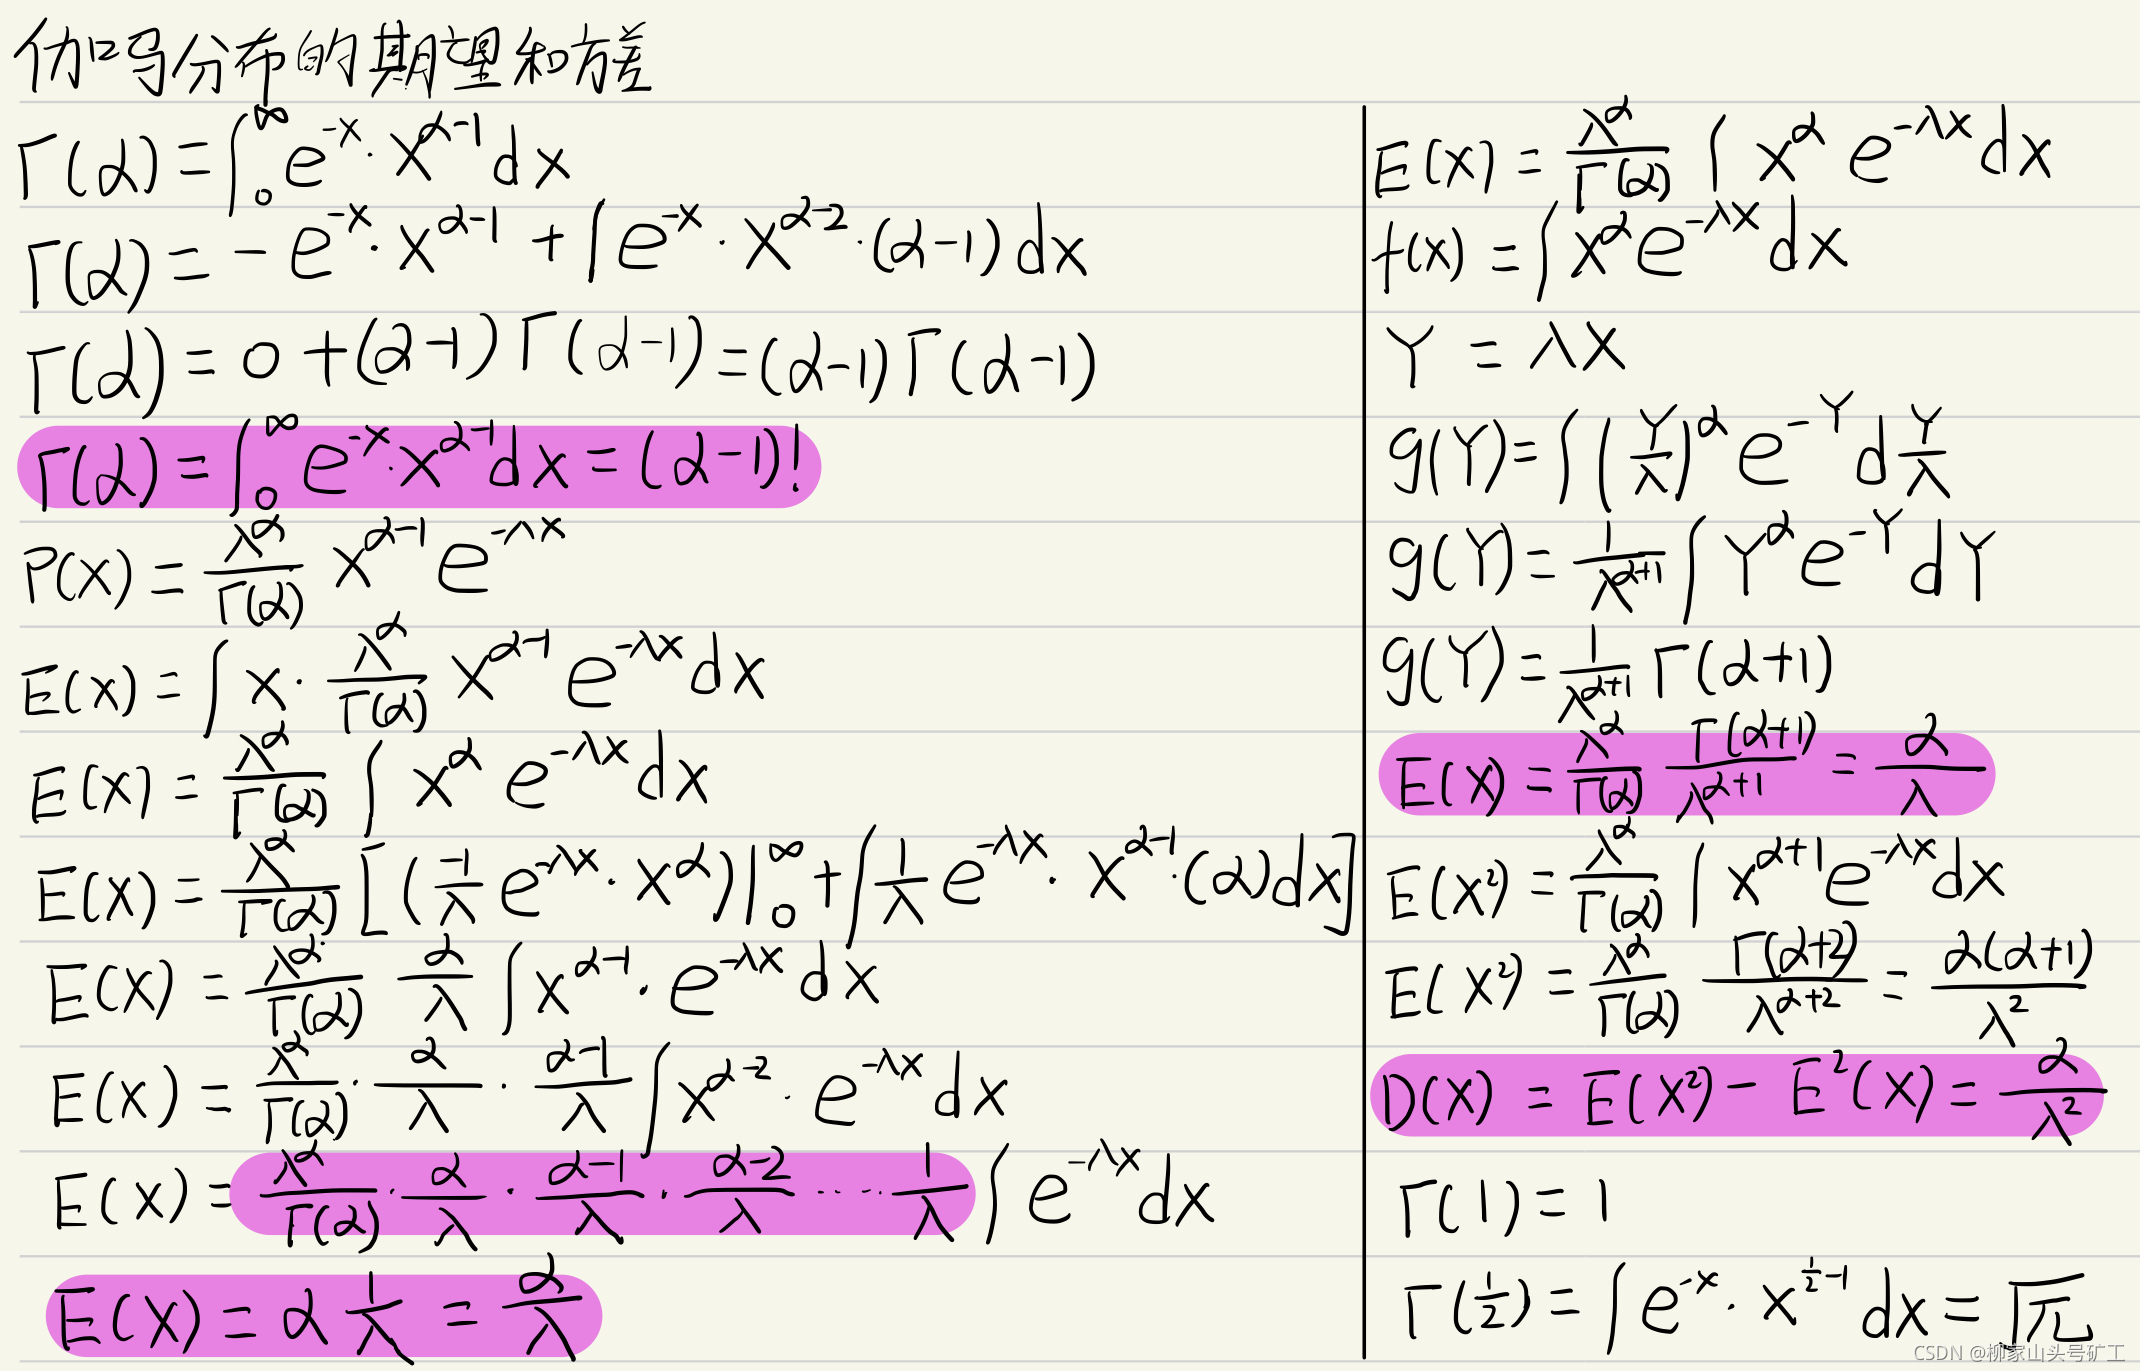 伽吗分布的期望和方差
Γ(α) = ∫₀^∞ e^{-x}·x^{α-1}dx
Γ(α) = -e^{-x}·x^{α-1} + ∫e^{-x}·x^{α-2}·(α-1)dx
Γ(α) = 0+(α-1)Γ(α-1) = (α-1)Γ(α-1)
Γ(α) = ∫₀^∞ e^{-x}·x^{α-1}dx = (α-1)!
P(X) = λ^α/Γ(α) x^{α-1} e^{-λx}
E(X) = ∫ x·λ^α/Γ(α) x^{α-1} e^{-λx}dx
E(X) = λ^α/Γ(α) ∫ x^α e^{-λx}dx
E(X) = λ^α/Γ(α) [(-1/λ e^{-λx}·x^α)|₀^∞ + ∫1/λ e^{-λx}·x^{α-1}·(α)dx]
E(X) = λ^α/Γ(α) α/λ ∫x^{α-1}·e^{-λx}dx
E(X) = λ^α/Γ(α)·α/λ·(α-1)/λ ∫x^{α-2}·e^{-λx}dx
E(X) = λ^α/Γ(α)·α/λ·(α-1)/λ·(α-2)/λ ······1/λ ∫e^{-λx}dx
E(X) = α 1/λ = α/λ
E(X) = λ^α/Γ(α) ∫ x^α e^{-λx}dx
f(x) = ∫x^α e^{-λx}dx
Y = λX
g(Y) = ∫(Y/λ)^α e^{-Y} d Y/λ
g(Y) = 1/λ^{α+1} ∫Y^α e^{-Y}dY
g(Y) = 1/λ^{α+1} Γ(α+1)
E(X) = λ^α/Γ(α) Γ(α+1)/λ^{α+1} = α/λ
E(X²) = λ^α/Γ(α) ∫x^{α+1}e^{-λx}dx
E(X²) = λ^α/Γ(α) Γ(α+2)/λ^{α+2} = α(α+1)/λ²
D(X) = E(X²) - E²(X) = α/λ²
Γ(1) = 1
Γ(1/2) = ∫e^{-x}·x^{1/2-1}dx = √π
CSDN @柳家山头号矿工